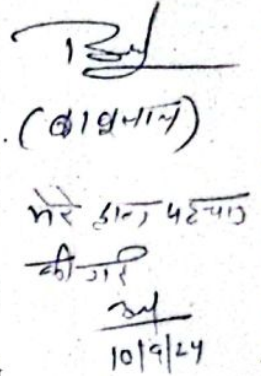 (बाबूलाल)
मेरे द्वारा पहचान
की गई
10/9/24